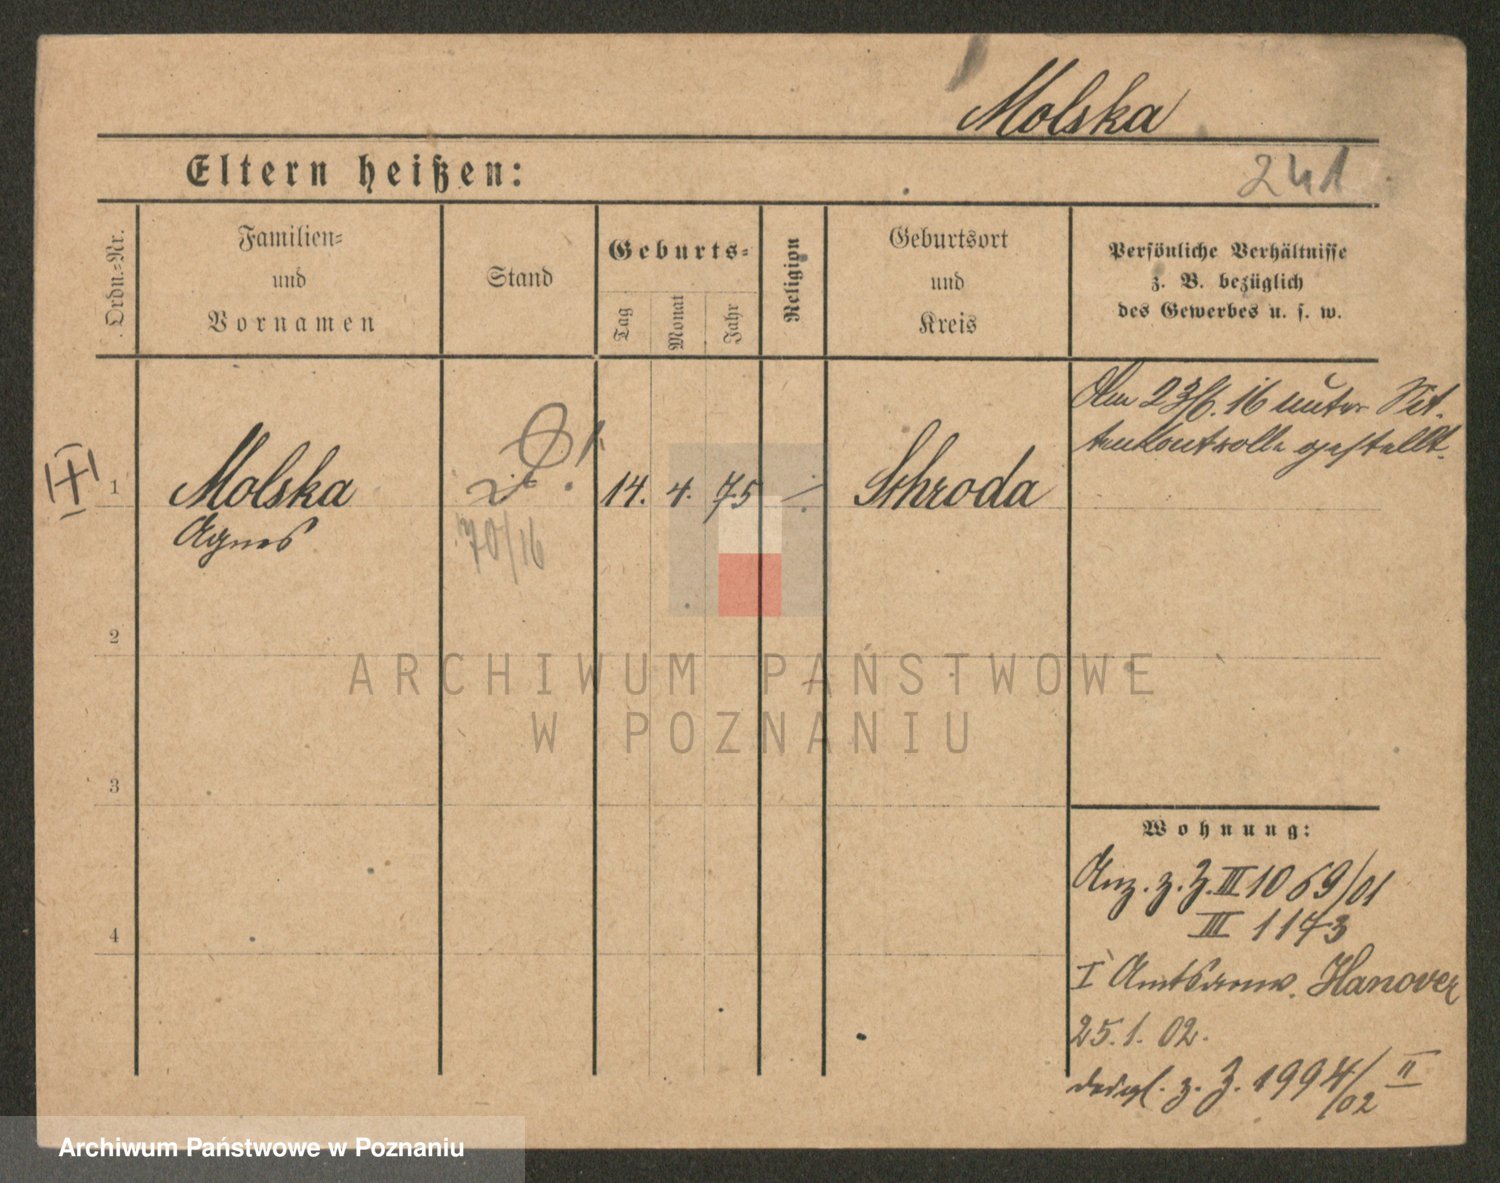 Molska
Eltern heißen:
241
Ordn.-Nr.
Familien-
und
Vornamen
Stand
Geburts-
Tag
Monat
Jahr
Religion
Geburtsort
und
Kreis
Persönliche Verhältnisse
z. B. bezüglich
des Gewerbes u. s. w.
Am 23/6. 16 unter Sit-
tenkontrolle gestellt.
1
Molska
14. 4. 75
Schroda
Agnes
70/16
2
3
4
ARCHIWUM PAŃSTWOWE
W POZNANIU
Wohnung:
Anz. z. Z. III 1069/01
III 1173
I Amtsanw. Hanover
25. 1. 02.
desgl. z. Z. 1994/02 II
Archiwum Państwowe w Poznaniu